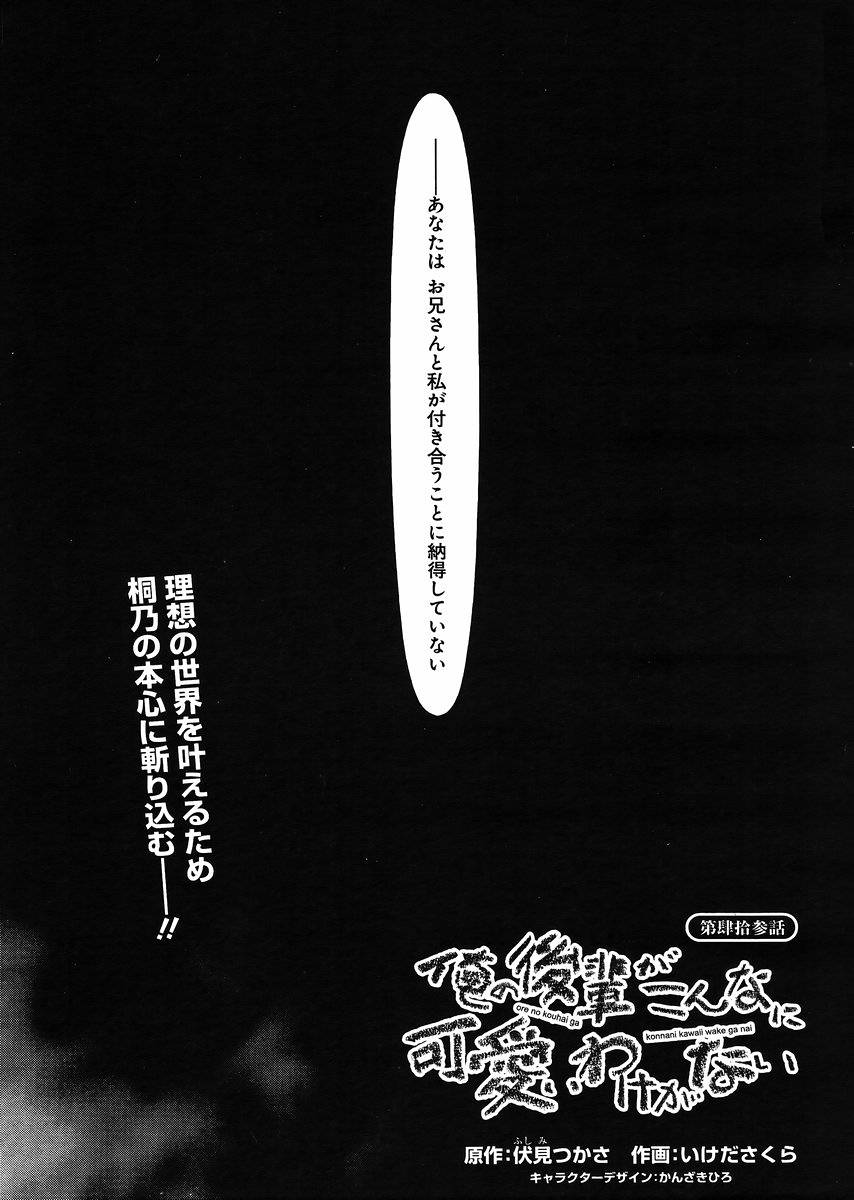 ──あなたは お兄さんと私が付き合うことに納得していない
理想の世界を叶えるため
桐乃の本心に斬り込む──!!
第肆拾参話
俺の後輩がこんなに
ore no kouhai ga
konnani kawaii wake ga nai
可愛いわけがない
ふしみ
原作:伏見つかさ 作画:いけださくら
キャラクターデザイン:かんざきひろ